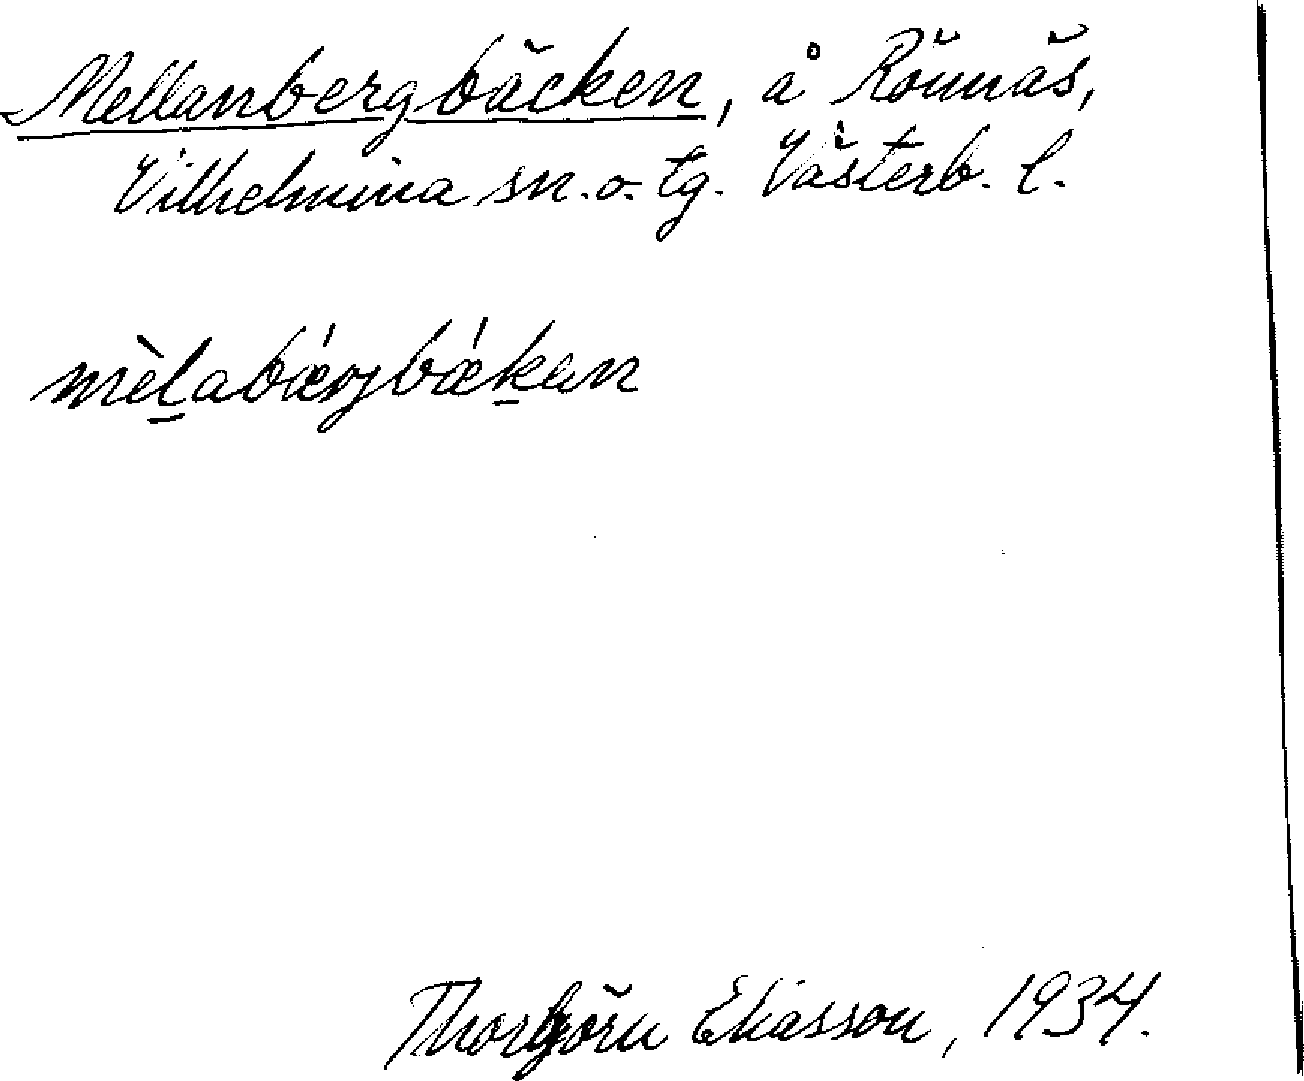 Mellanbergbäcken, å Rönnäs,
Vilhelmina sn. o. tg. Västerb. l.
mèl̲abǽrjbǽk̲an
Thorbjörn Eliasson, 1934.